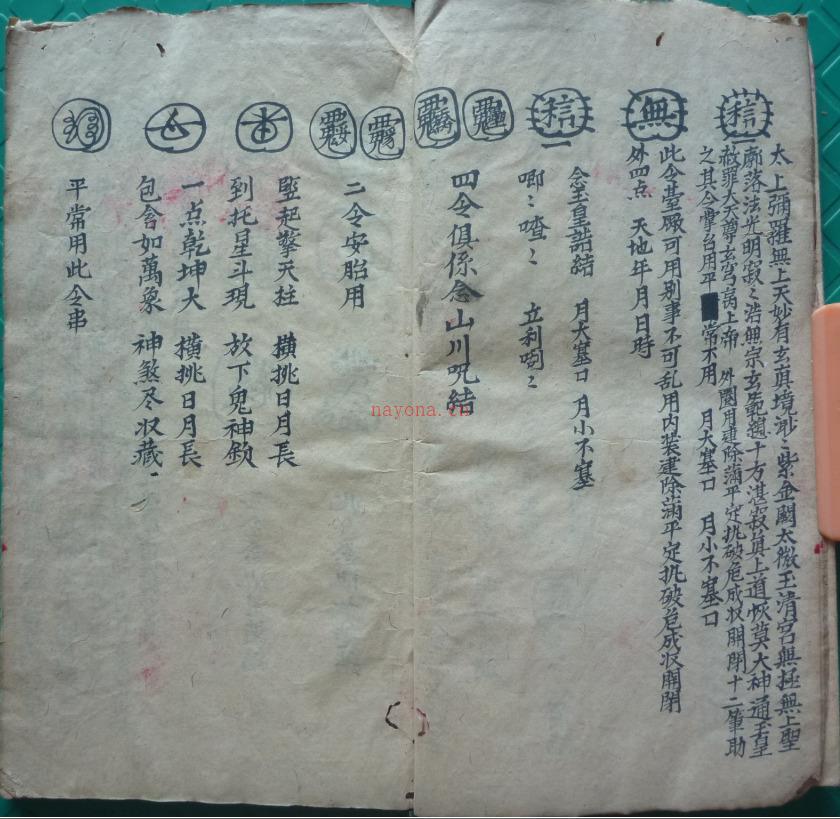 太上彌羅無上天妙有玄真境渺〻紫金闕太微玉清宮無極無上聖
廓落法光明寂〻浩無宗玄範總十方湛寂真上道恢莫大神通玉皇
赦罪大天尊玄穹高上帝 外圈用建除滿平定执破危成收開閉十二筆助
之其令掌台用平 常不用 月大塞口 月小不塞口
無
此令臺厰可用别事不可乱用内装建除滿平定执破危成收開閉
外四点 天地年月日時
念玉皇誥結 月大塞口 月小不塞
唧〻喳〻 立利㘕〻
四令俱係念山川咒結
二令安胎用
竪起擎天柱 横挑日月長
到托星斗現 放下鬼神鎖
一点乾坤大 横挑日月長
包含如萬象 神煞尽收藏
平常用此令串
nayona.cn